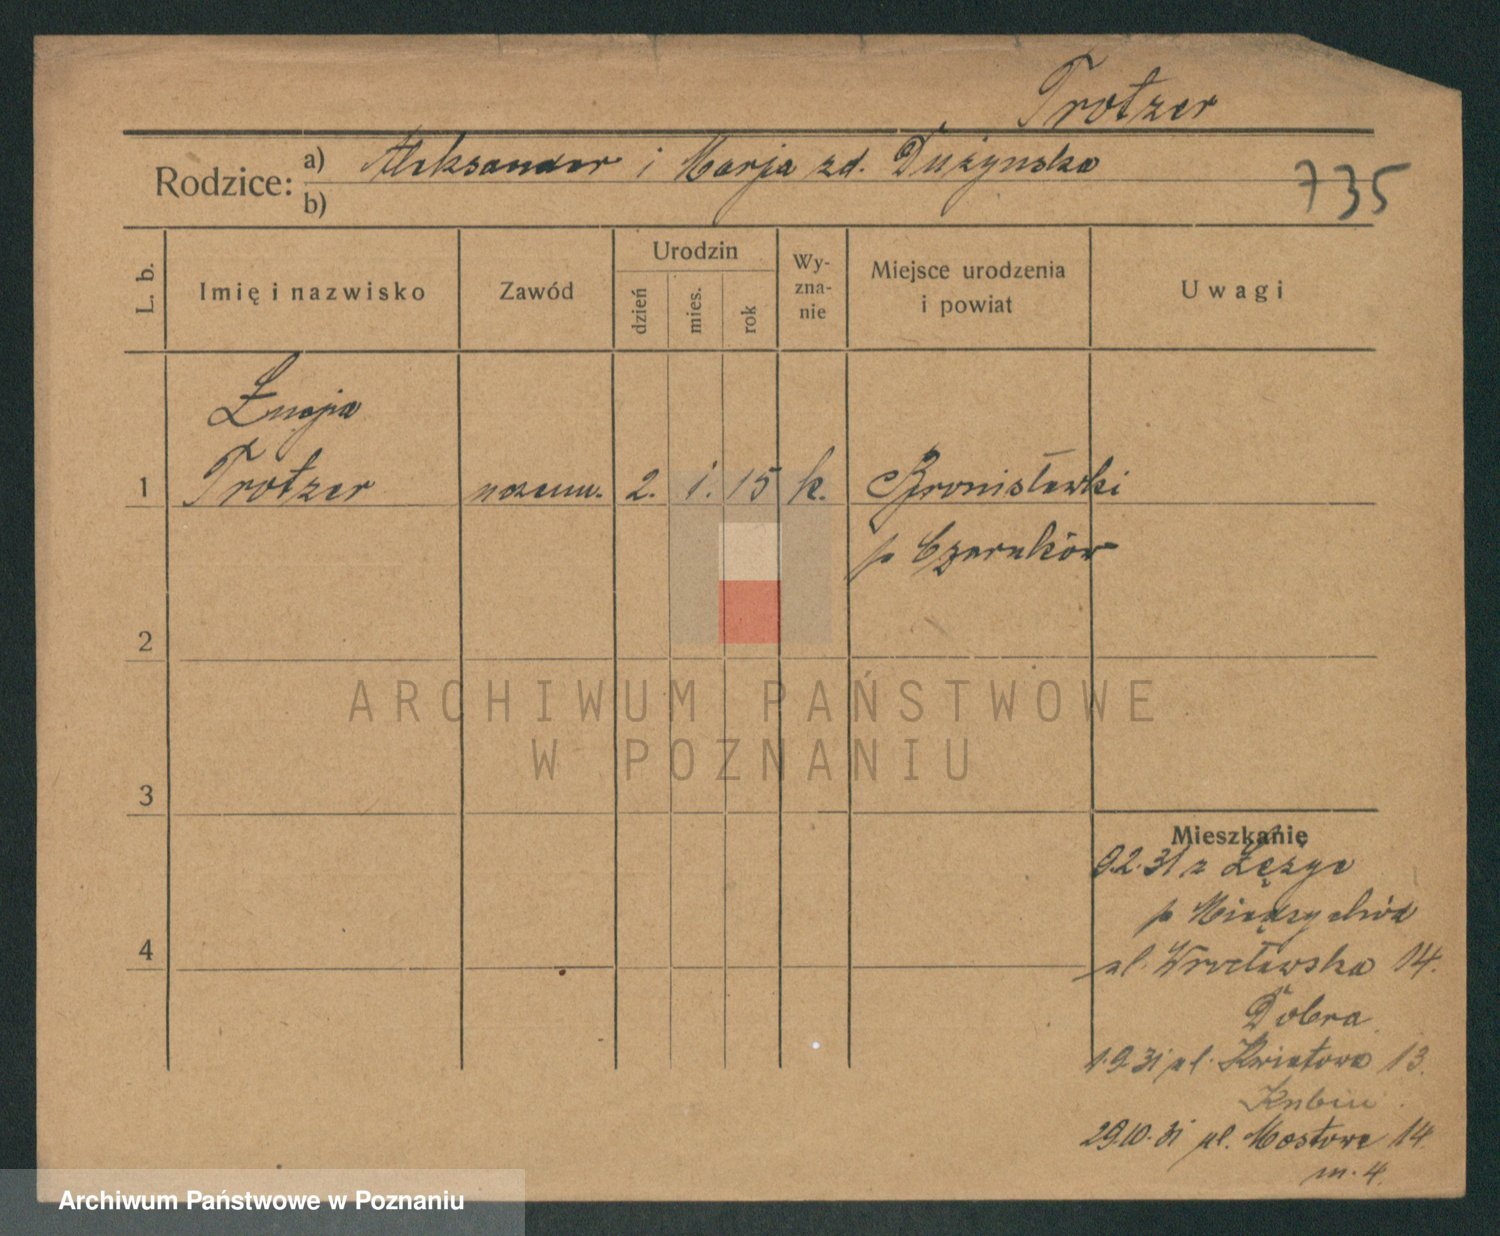 Trotzer
Rodzice: a) Aleksander i Marja zd. Dużynska
b)
735
L. b.
Imię i nazwisko
Zawód
Urodzin
dzień
mies.
rok
Wy-
zna-
nie
Miejsce urodzenia
i powiat
Uwagi
Łucja
1 Trotzer 2. 1. 15 k. Bronisławki
p Czarnków
2
3
4
Mieszkanie
9.2.31 z Łężyc
p Międzychód
ul. Wrocławska 14.
Dobra
1.9.31 ul. Kwiatowa 13.
29.10.31 ul. Mostowa 14.
m. 4.
ARCHIWUM PAŃSTWOWE
W POZNANIU
Archiwum Państwowe w Poznaniu